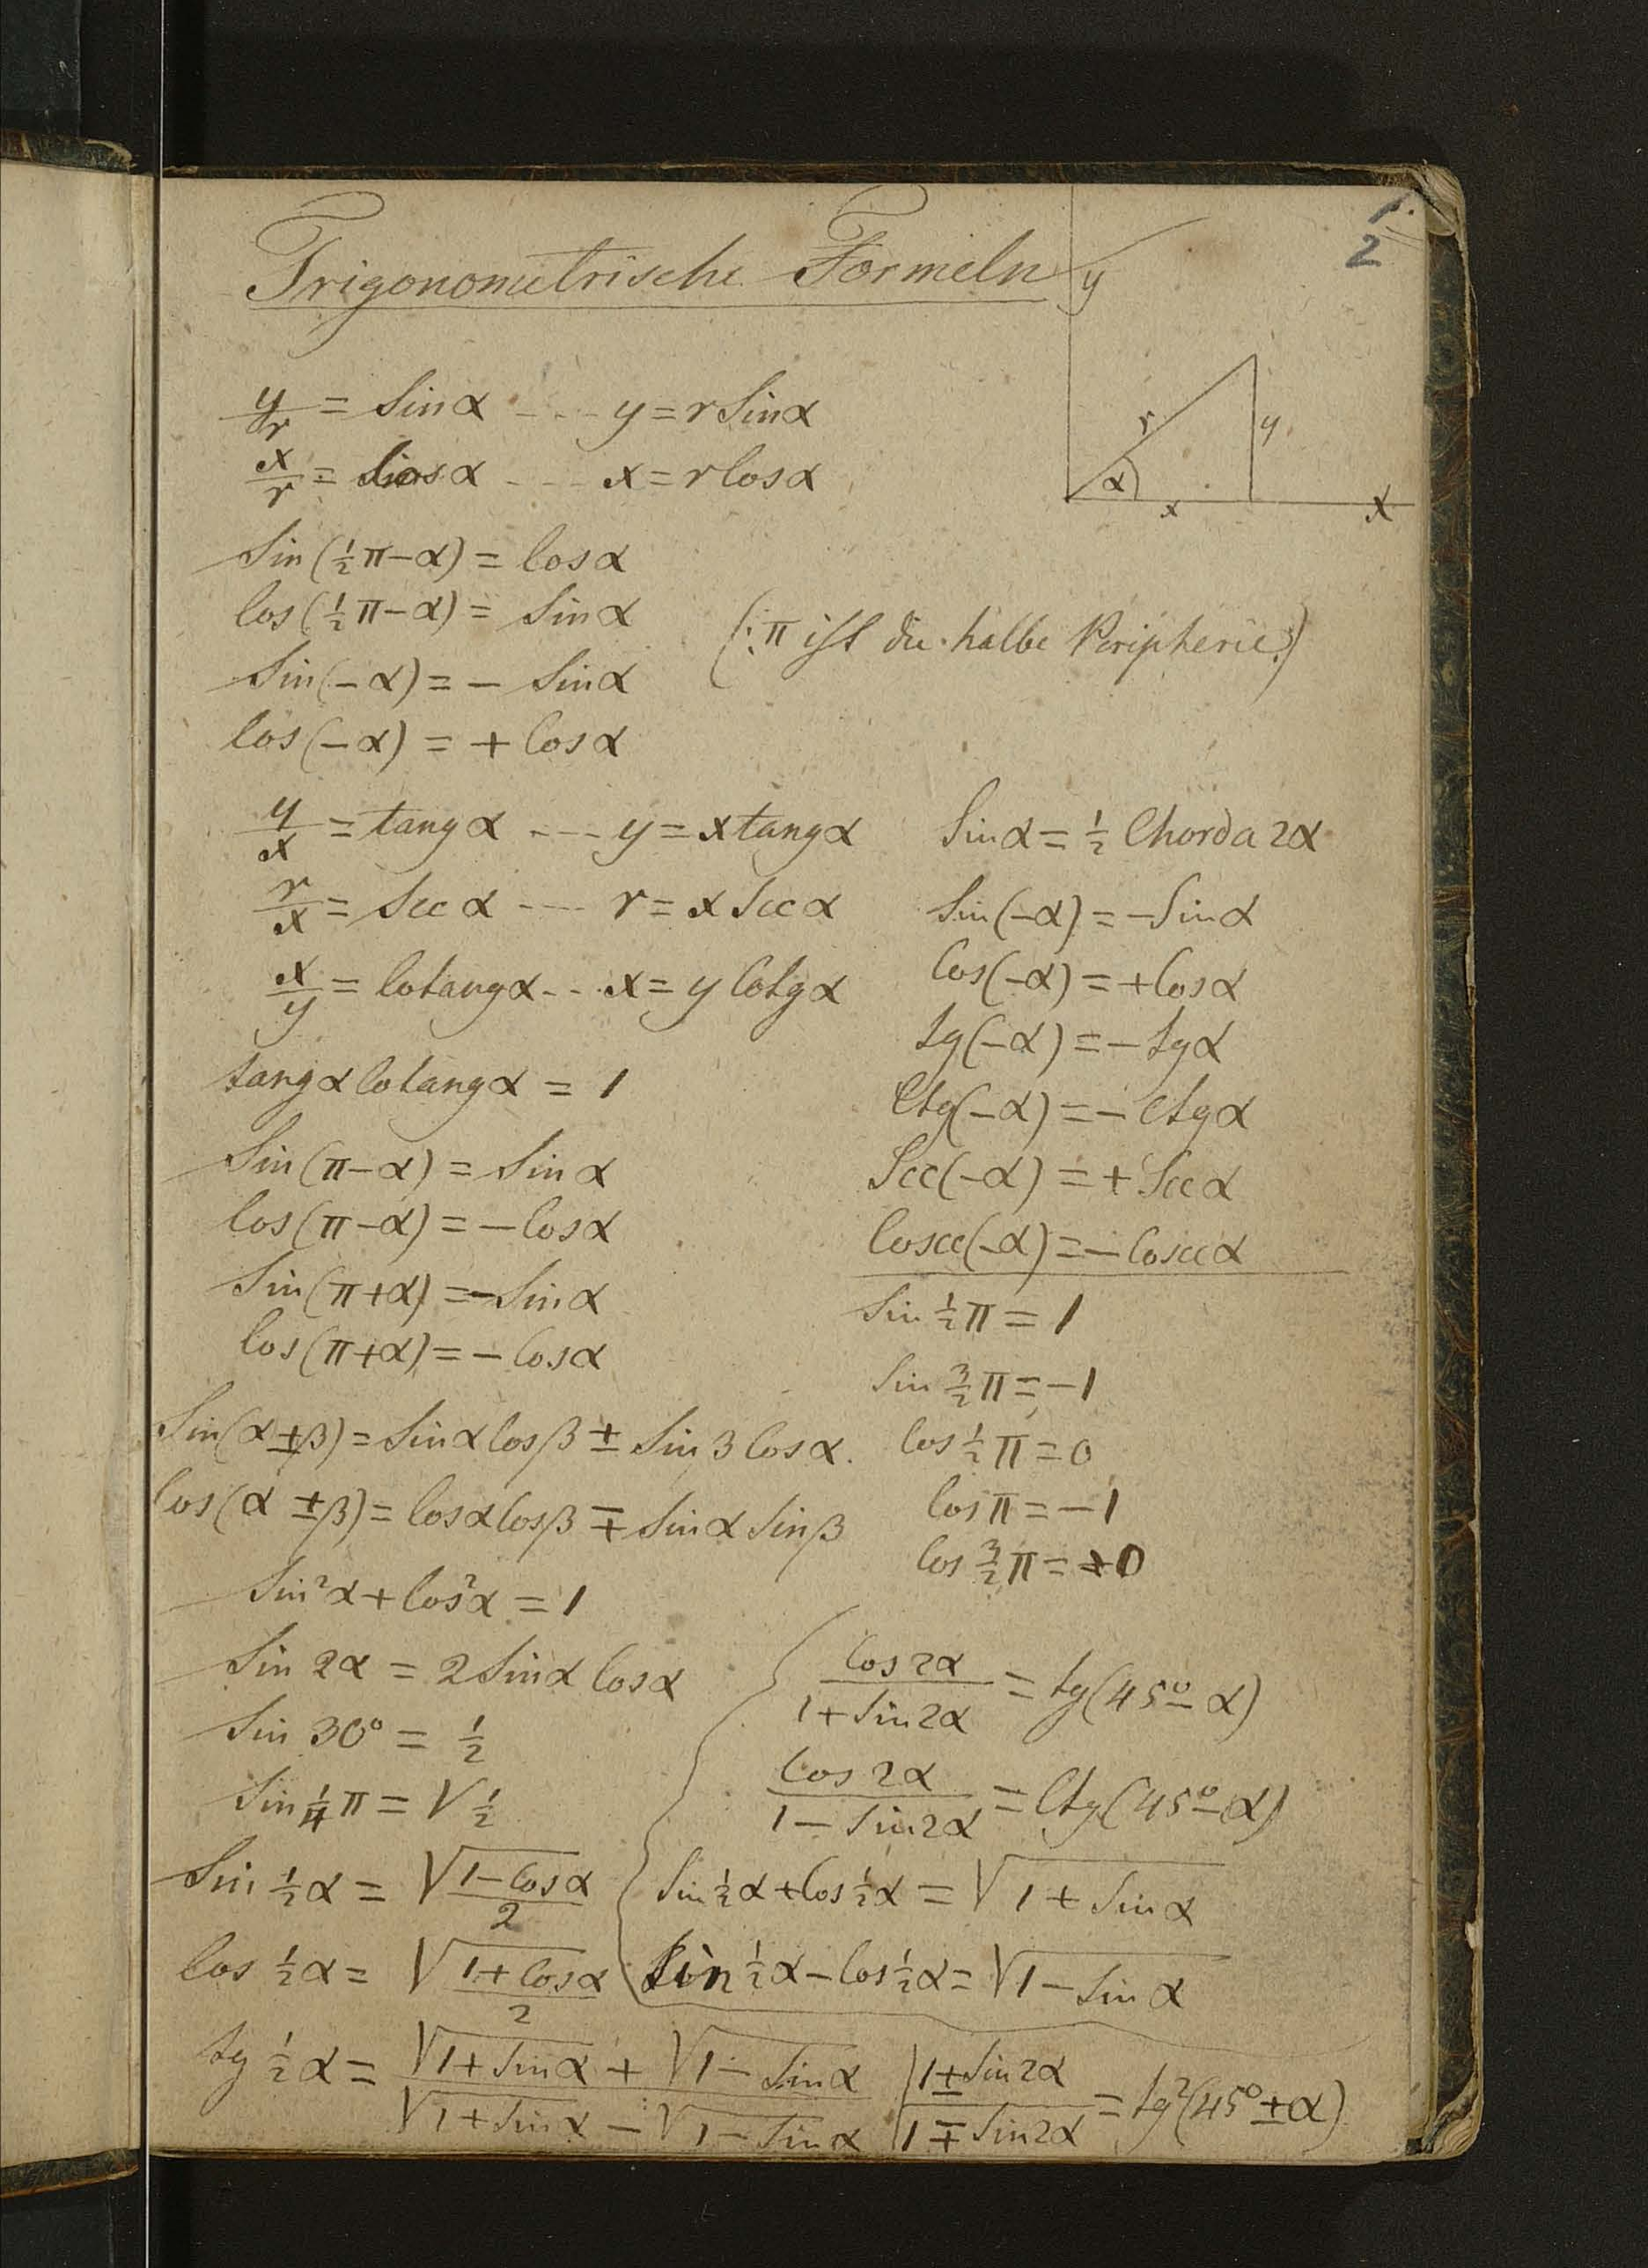 1.
2
Trigonometrische Formeln
y
r
y
α
x
X
y/r = Sin α - - - y = r Sin α
x/r = Cos α - - - x = r Cos α
Sin (½π - α) = Cos α
Cos (½π - α) = Sin α
(: π ist die halbe Peripherie :)
Sin (- α) = - Sin α
Cos (- α) = + Cos α
y/x = tang α - - - y = x tang α
r/x = Sec α - - - r = x Sec α
x/y = Cotang α - - - x = y Cotg α
tang α Cotang α = 1
Sin (π - α) = Sin α
Cos (π - α) = - Cos α
Sin (π + α) = - Sin α
Cos (π + α) = - Cos α
Sin (α ± β) = Sin α Cos β ± Sin β Cos α.
Cos (α ± β) = Cos α Cos β ∓ Sin α Sin β
Sin²α + Cos²α = 1
Sin 2α = 2 Sin α Cos α
Sin 30° = ½
Sin ¼π = √½
Sin ½α = √(1 - Cos α)/2
Cos ½α = √(1 + Cos α)/2
tg ½α = (√(1 + Sin α) + √(1 - Sin α))/(√(1 + Sin α) - √(1 - Sin α))
Sin α = ½ Chorda 2α
Sin (-α) = - Sin α
Cos (-α) = + Cos α
tg (-α) = - tg α
Ctg (-α) = - Ctg α
Sec (-α) = + Sec α
Cosec (-α) = - Cosec α
Sin ½π = 1
Sin 3/2 π = -1
Cos ½π = 0
Cos π = -1
Cos 3/2 π = +0
Cos 2α/(1 + Sin 2α) = tg (45° - α)
Cos 2α/(1 - Sin 2α) = Ctg (45° - α)
Sin ½α + Cos ½α = √(1 + Sin α)
Sin ½α - Cos ½α = √(1 - Sin α)
(1 ± Sin 2α)/(1 ∓ Sin 2α) = tg² (45° ± α)